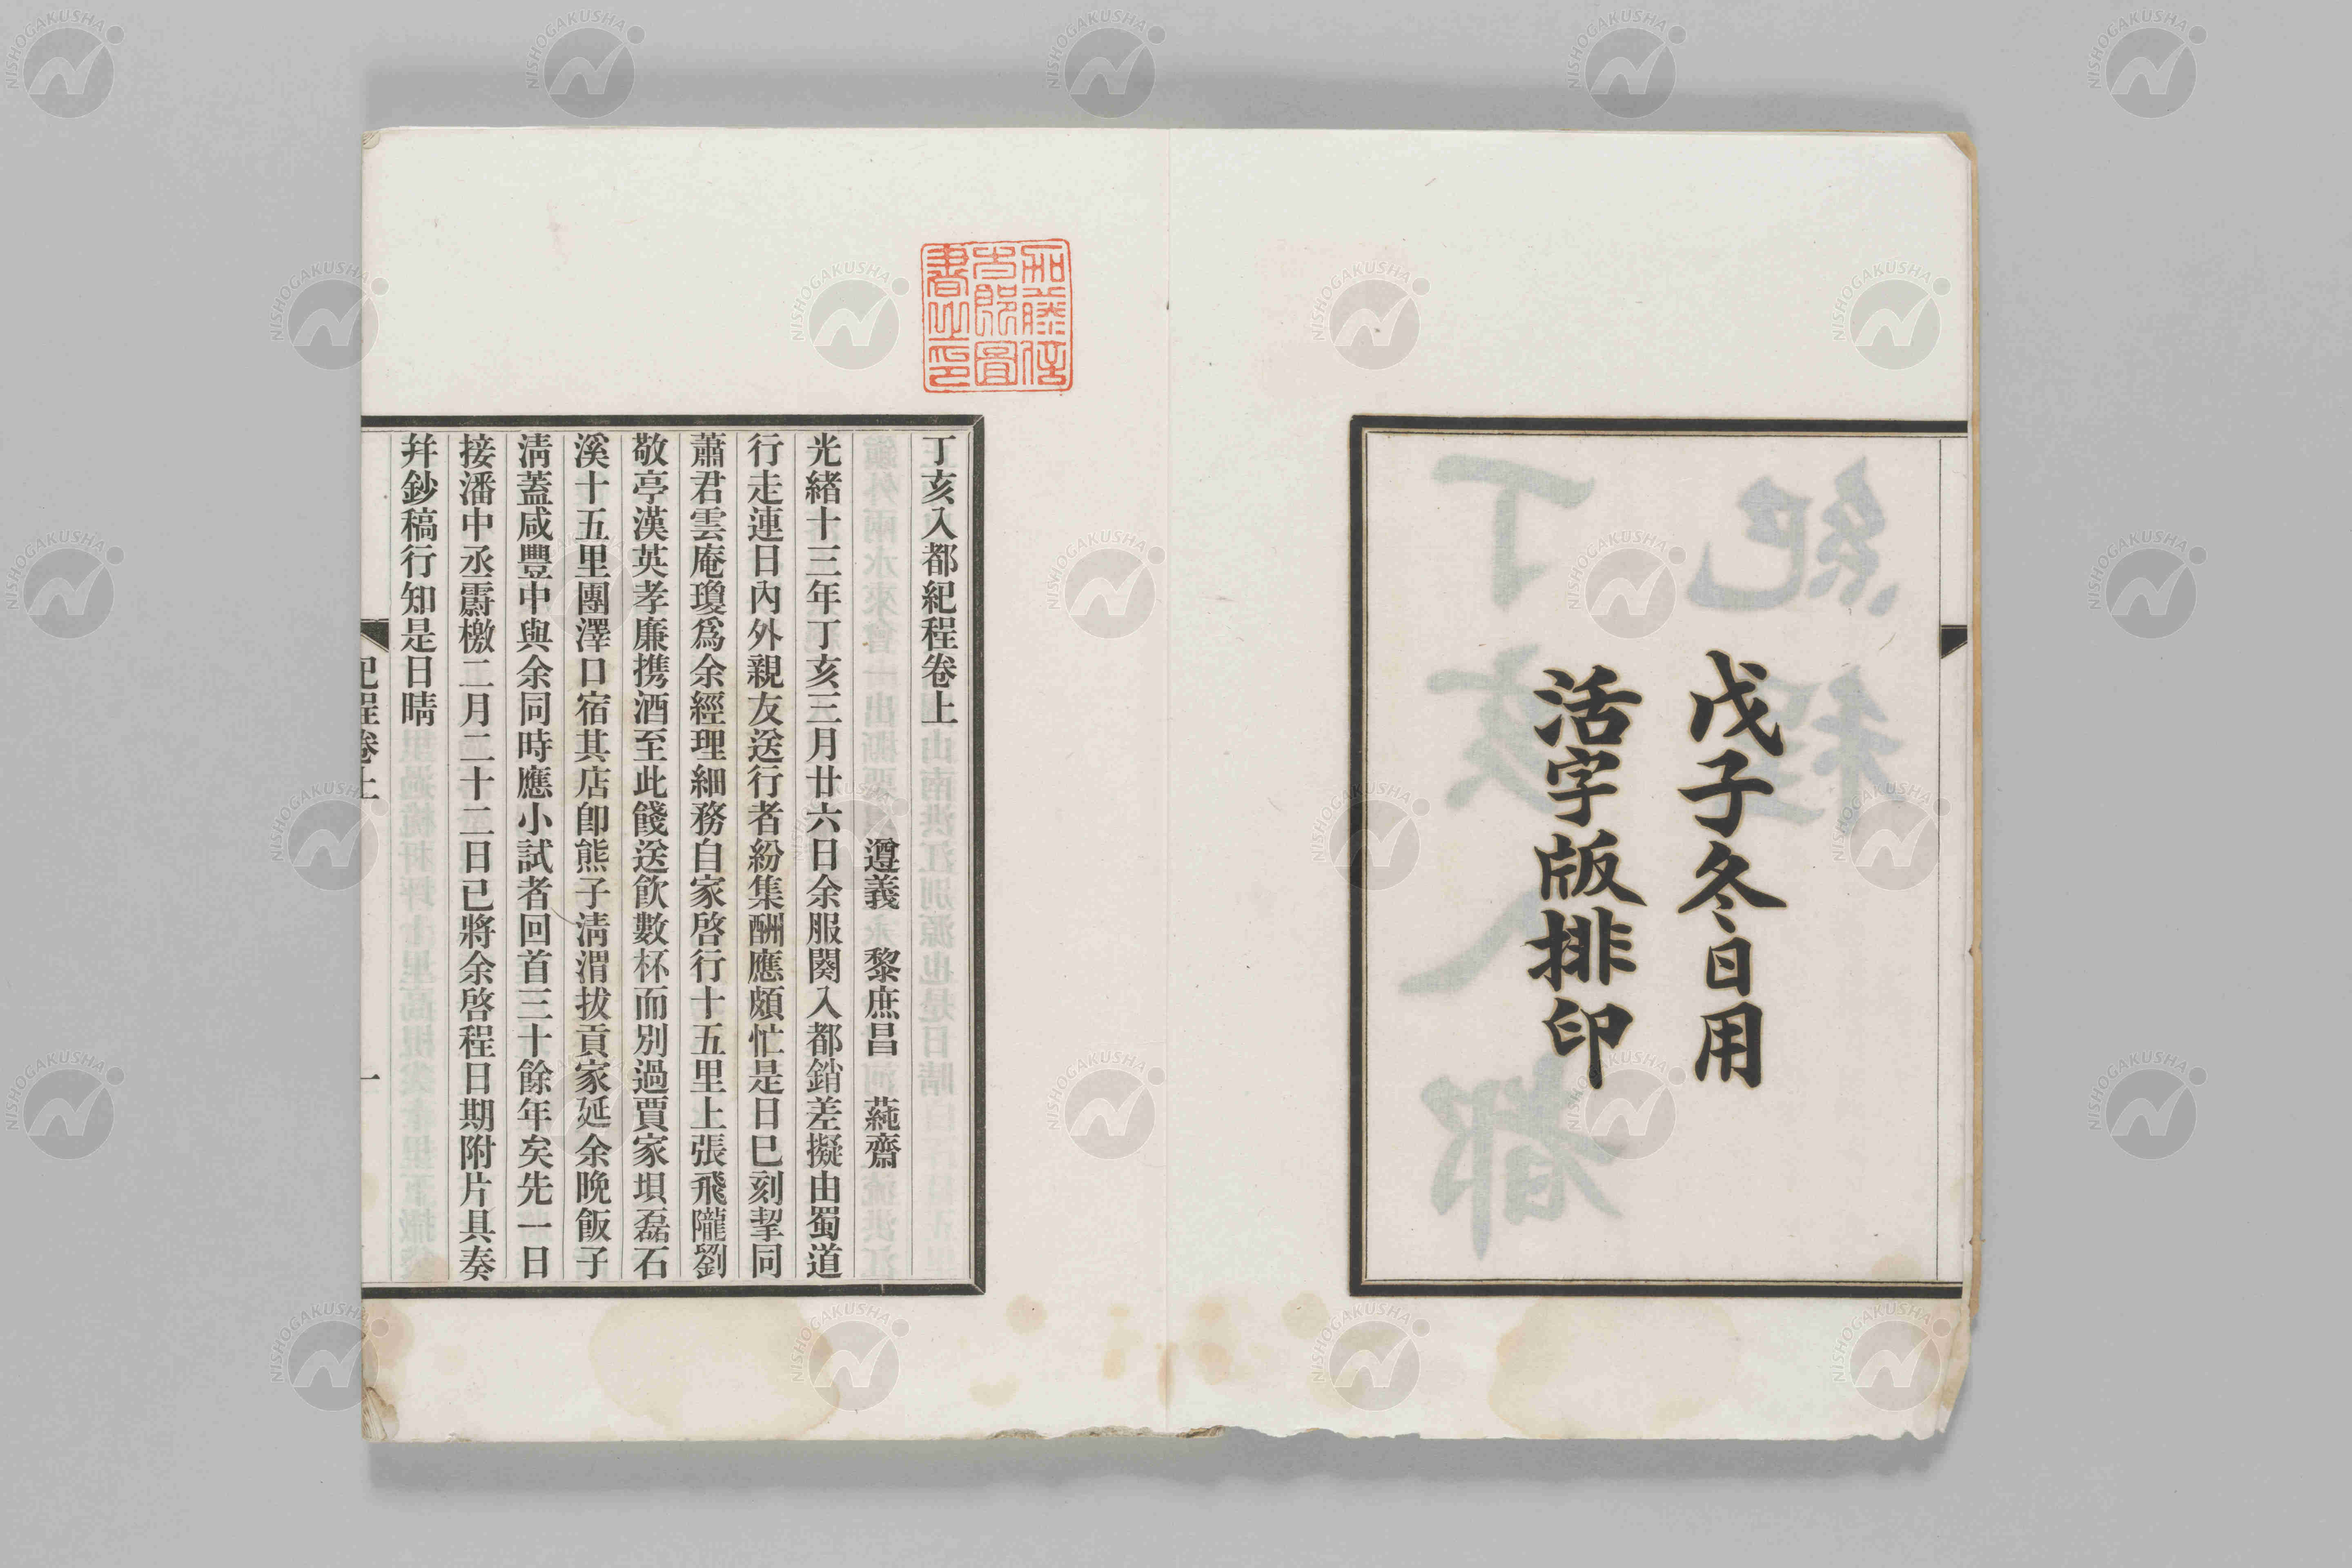 戊子冬日用
活字版排印
丁亥入都紀程卷上
遵義 黎庶昌 蒓齋
光緒十三年丁亥三月廿六日余服闋入都銷差擬由蜀道
行走連日內外親友送行者紛集酬應頗忙是日巳刻挈同
蕭君雲庵瓊爲余經理細務自家啓行十五里上張飛隴劉
敬亭漢英孝廉携酒至此餞送飮數杯而別過賈家埧磊石
溪十五里團澤口宿其店卽熊子淸渭拔貢家延余晚飯子
淸蓋咸豐中與余同時應小試者回首三十餘年矣先一日
接潘中丞霨檄二月二十二日已將余啓程日期附片具奏
幷鈔稿行知是日晴
紀程卷上
一
加藤信
書之印
NISHOGAKUSHA